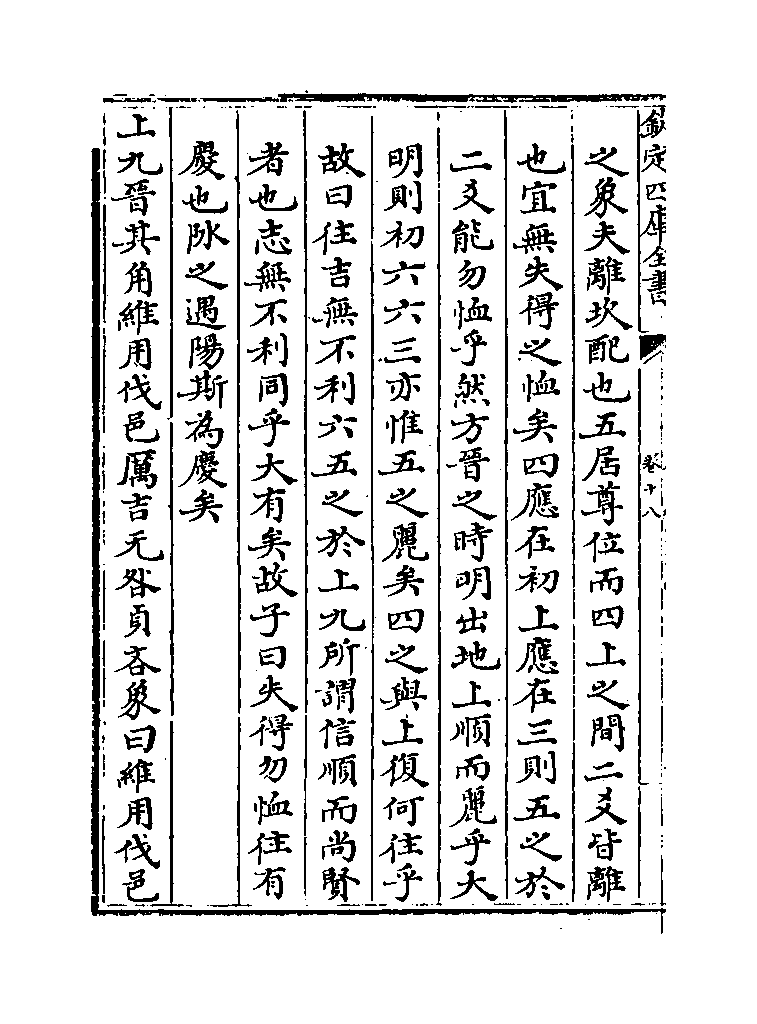 欽定四庫全書
卷十八
之象夫離坎配也五居尊位而四上之間二爻皆離
也宜無失得之恤矣四應在初上應在三則五之於
二爻能勿恤乎然方晉之時明出地上順而麗乎大
明則初六六三亦惟五之麗矣四之與上復何往乎
故曰往吉無不利六五之於上九所謂信順而尚賢
者也志無不利同乎大有矣故子曰失得勿恤往有
慶也隂之遇陽斯為慶矣
上九晉其角維用伐邑厲吉无咎貞吝象曰維用伐邑